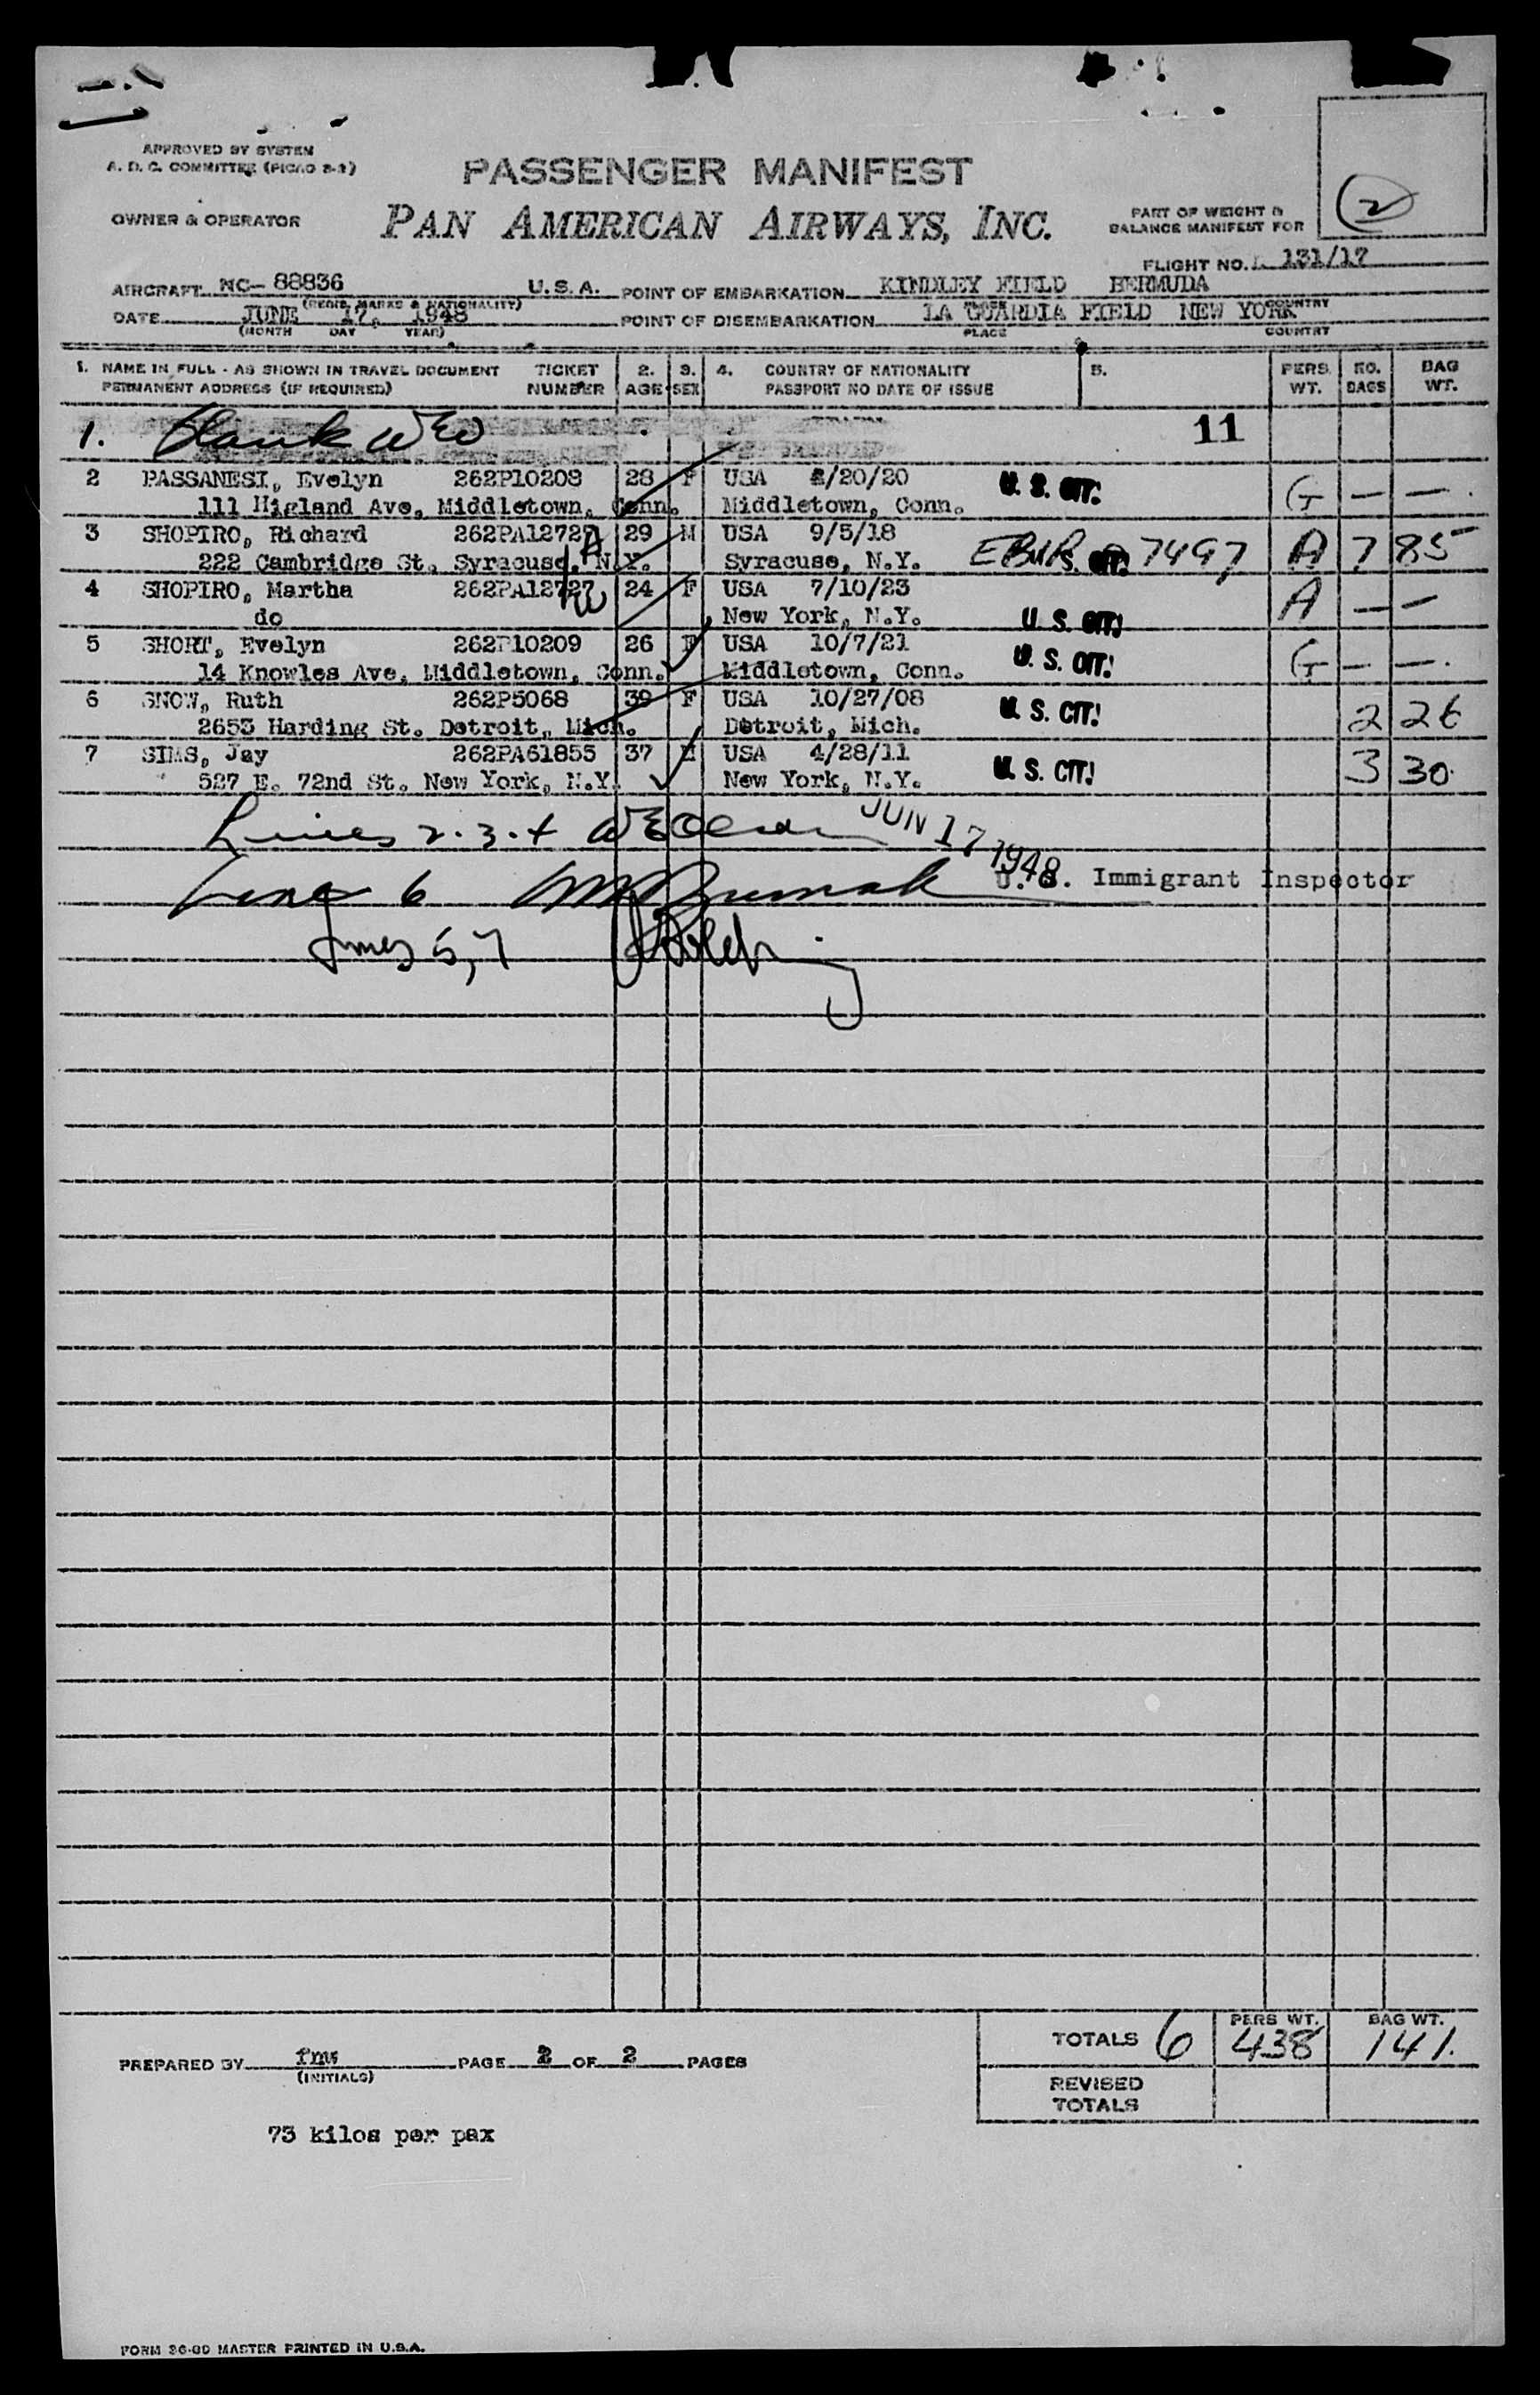 APPROVED BY SYSTEM
A. D. C. COMMITTEE (PICAO 2-2)
PASSENGER MANIFEST
OWNER & OPERATOR
PAN AMERICAN AIRWAYS, INC.
PART OF WEIGHT &
BALANCE MANIFEST FOR
2
FLIGHT NO. 131/17
AIRCRAFT NC- 88836 U.S.A. POINT OF EMBARKATION KINDLEY FIELD BERMUDA
(REGIS. MARKS & NATIONALITY) PLACE COUNTRY
DATE JUNE 17, 1948 POINT OF DISEMBARKATION LA GUARDIA FIELD NEW YORK
(MONTH DAY YEAR) PLACE COUNTRY
1. NAME IN FULL - AS SHOWN IN TRAVEL DOCUMENT TICKET 2. 3. 4. COUNTRY OF NATIONALITY 5. PERS. NO. BAG
PERMANENT ADDRESS (IF REQUIRED) NUMBER AGE SEX PASSPORT NO DATE OF ISSUE WT. BAGS WT.
1. Blank WEO 11
2 PASSANESI, Evelyn 262P10208 28 F USA 2/20/20 U. S. CIT. G — —
111 Higland Ave, Middletown, Conn. Middletown, Conn.
3 SHOPIRO, Richard 262PA12727 A 29 M USA 9/5/18 A 7 85
222 Cambridge St. Syracuse, N.Y. Syracuse, N.Y. S. CIT. 7497
4 SHOPIRO, Martha 262PA12727 24 F USA 7/10/23 A — —
do New York, N.Y. U. S. CIT.
5 SHORT, Evelyn 262P10209 26 F USA 10/7/21 U. S. CIT. G — —
14 Knowles Ave, Middletown, Conn. Middletown, Conn.
6 SNOW, Ruth 262P5068 39 F USA 10/27/08 U. S. CIT. 2 26
2653 Harding St. Detroit, Mich. Detroit, Mich.
7 SIMS, Jay 262PA61855 37 M USA 4/28/11 U. S. CIT. 3 30
527 E. 72nd St. New York, N.Y. New York, N.Y.
Lines 2.3.4 JUN 17 1948
Line 6 U. S. Immigrant Inspector
Lines 5, 7
TOTALS 6 PERS WT. 438 BAG WT. 141.
PREPARED BY fmw PAGE 2 OF 2 PAGES
(INITIALS)
REVISED
TOTALS
73 kilos per pax
FORM 36-0D MASTER PRINTED IN U.S.A.